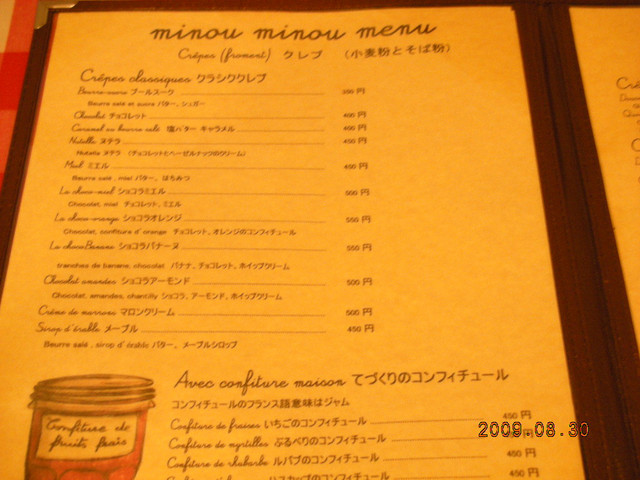 minou minou menu
Crêpes (froment) クレプ (小麦粉とそば粉)
Crêpes classiques クラシッククレプ
Beurre-sucre ブールスーク 350 円
Beurre salé et sucre バター、シュガー
Chocolat チョコレット 400 円
Caramel au beurre salé 塩バター キャラメル 450 円
Nutella ヌテラ 450 円
Nutella ヌテラ (チョコレットとヘーゼルナッツのクリーム)
Miel ミエル 450 円
Beurre salé, miel バター、はちみつ
La choco-miel ショコラミエル 500 円
Chocolat, miel チョコレット、ミエル
La choco-orange ショコラオレンジ 550 円
Chocolat, confiture d'orange チョコレット、オレンジのコンフィチュール
La chocoBanane ショコラバナーヌ 550 円
tranches de banane, chocolat バナナ、チョコレット、ホイップクリーム
Chocolat amandes ショコラアーモンド 500 円
Chocolat, amandes, chantilly ショコラ、アーモンド、ホイップクリーム
Crème de marrons マロンクリーム 500 円
Sirop d'érable メープル 450 円
Beurre salé, sirop d'érable バター、メープルシロップ
Avec confiture maison てづくりのコンフィチュール
コンフィチュールのフランス語意味はジャム
Confiture de fraises いちごのコンフィチュール 450 円
Confiture de myrtilles ぶるべりのコンフィチュール 円
Confiture de rhubarbe ルバブのコンフィチュール 450 円
ハスカップのコンフィチュール 450 円
Confiture de
fruits frais
2009.08.30